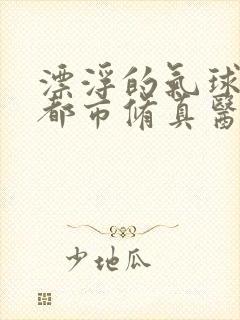 漂浮的氣球
都市脩真醫
少地瓜